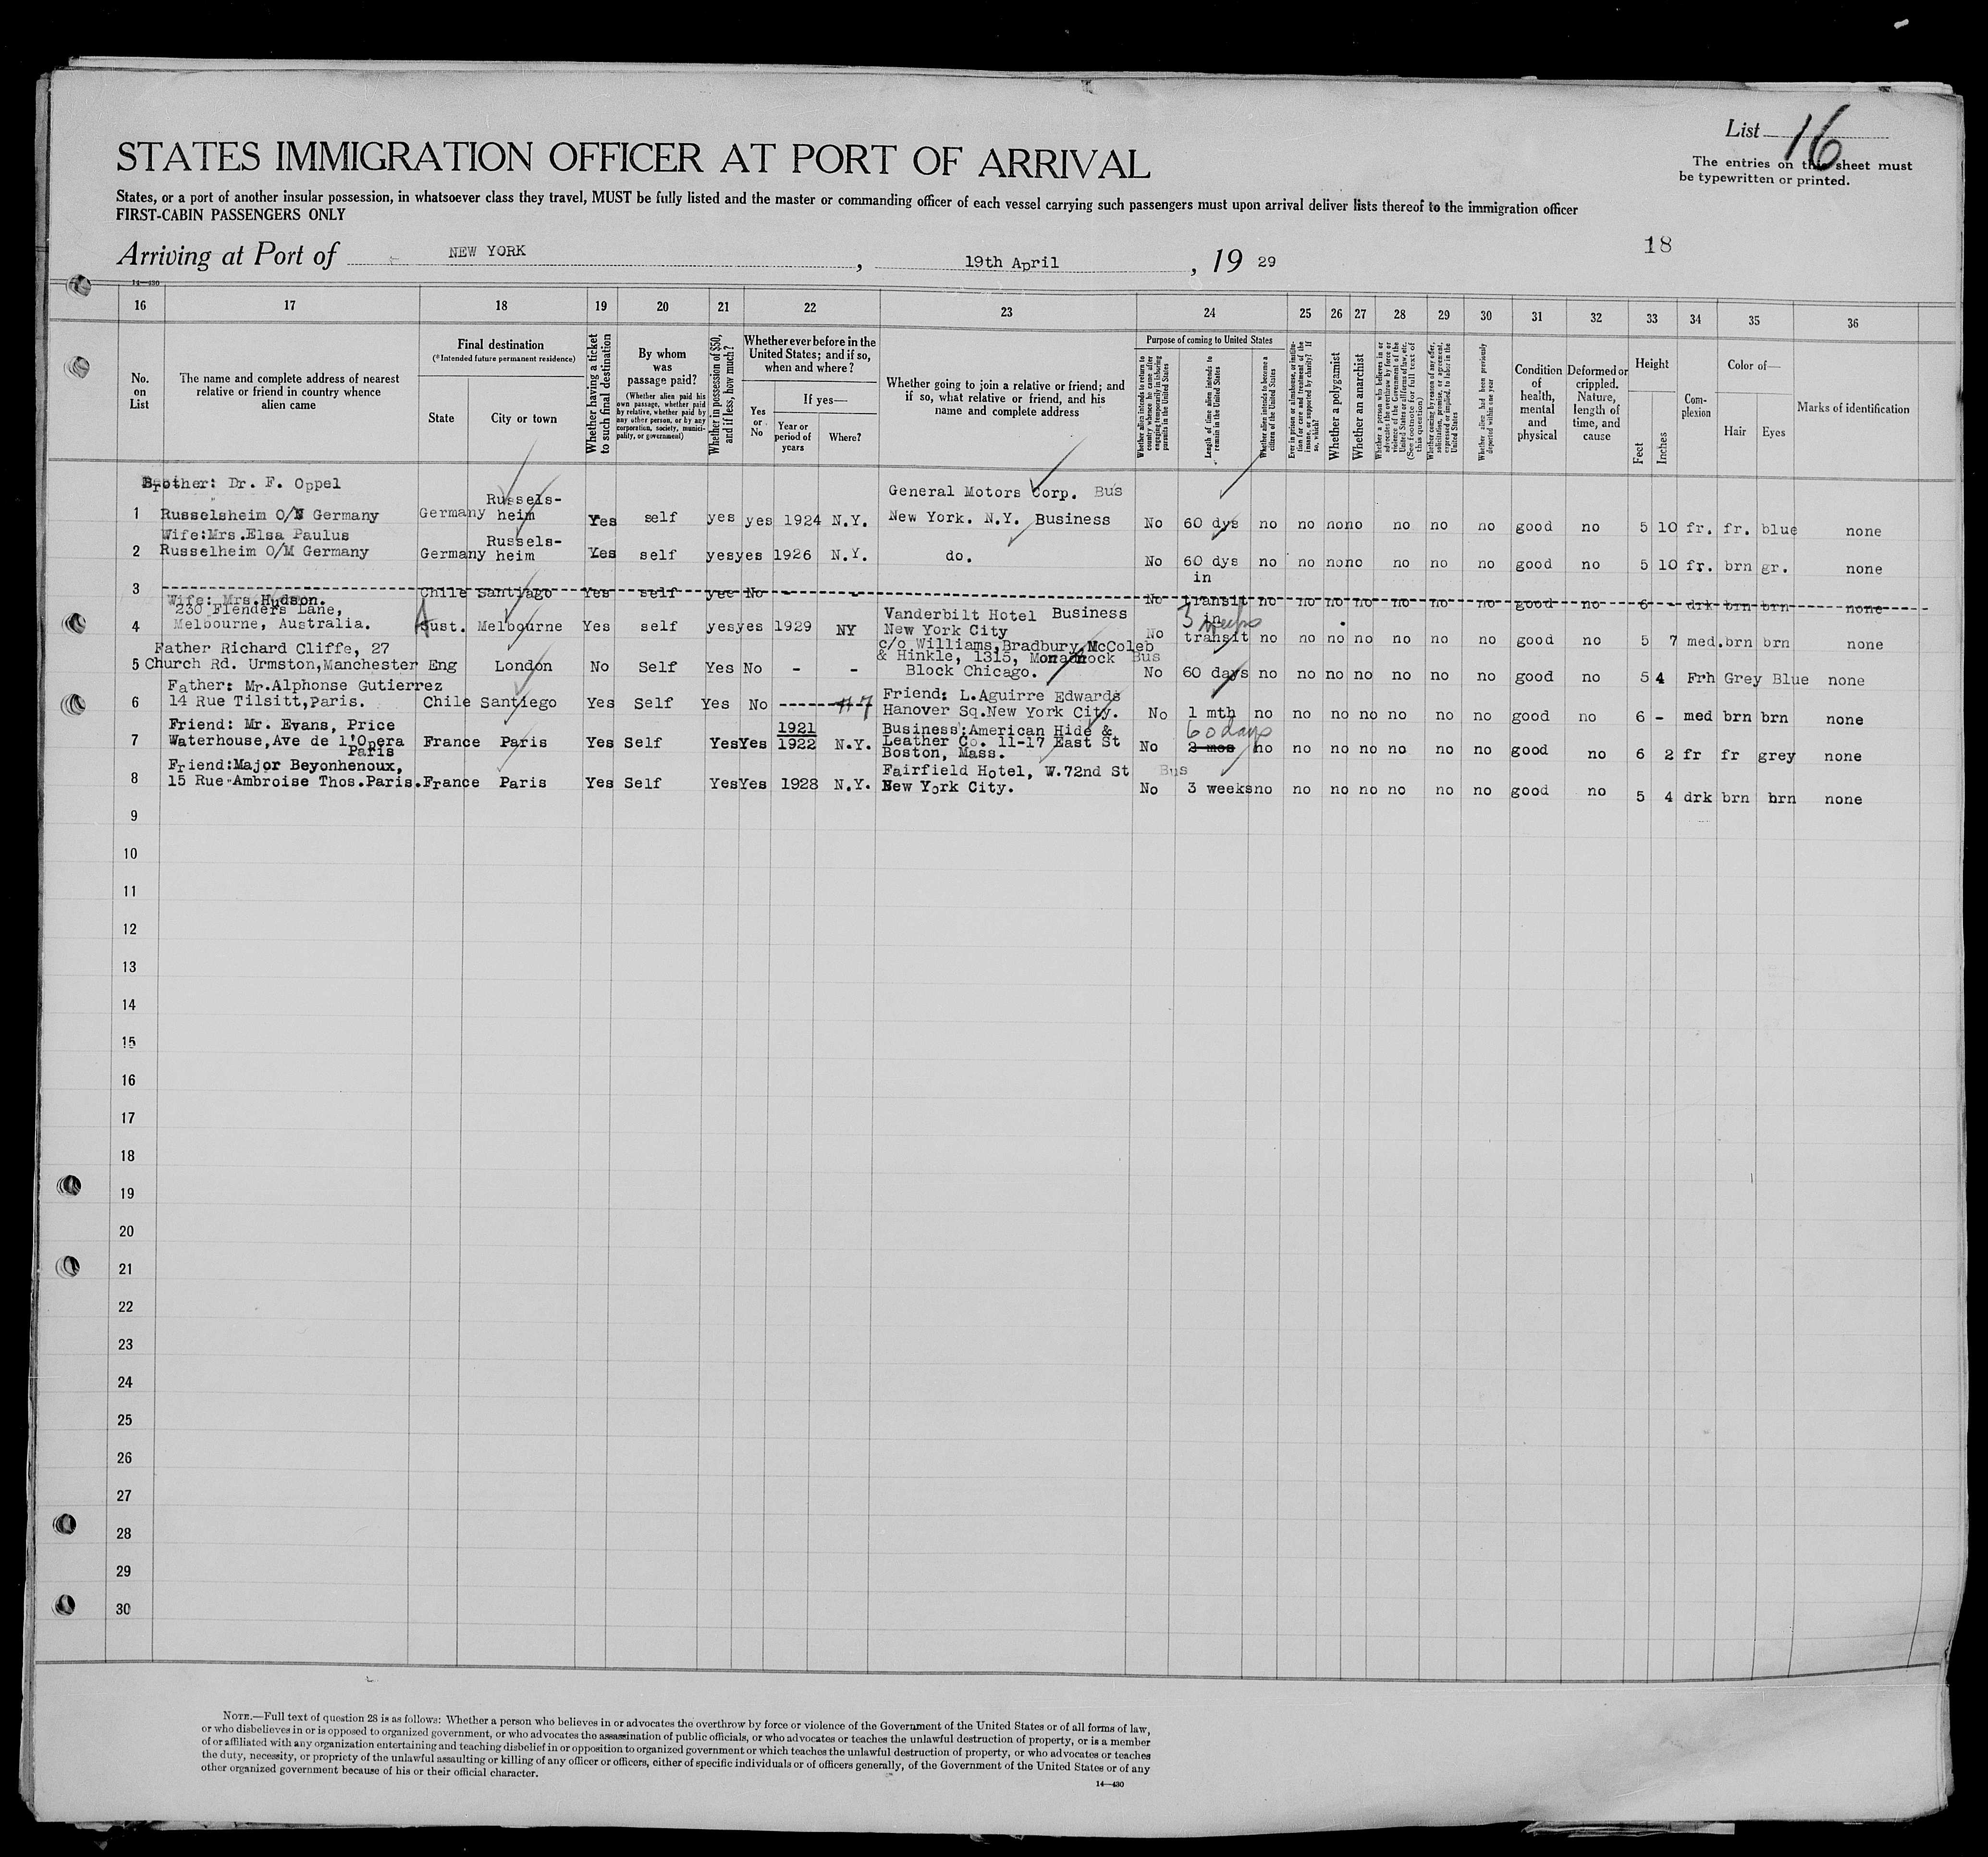 List 16
The entries on this sheet must
be typewritten or printed.
STATES IMMIGRATION OFFICER AT PORT OF ARRIVAL
States, or a port of another insular possession, in whatsoever class they travel, MUST be fully listed and the master or commanding officer of each vessel carrying such passengers must upon arrival deliver lists thereof to the immigration officer
FIRST-CABIN PASSENGERS ONLY
18
Arriving at Port of NEW YORK, 19th April, 19 29
14—430
16 17 18 19 20 21 22 23 24 25 26 27 28 29 30 31 32 33 34 35 36
No. on List
The name and complete address of nearest relative or friend in country whence alien came
Final destination
(*Intended future permanent residence)
State
City or town
Whether having a ticket to such final destination
By whom was passage paid?
(Whether alien paid his own passage, whether paid by relative, whether paid by any other person, or by any corporation, society, municipality, or government)
Whether in possession of $50, and if less, how much?
Whether ever before in the United States; and if so, when and where?
Yes or No
If yes—
Year or period of years
Where?
Whether going to join a relative or friend; and if so, what relative or friend, and his name and complete address
Purpose of coming to United States
Whether alien intends to return to country whence he came after engaging temporarily in laboring pursuits in the United States
Length of time alien intends to remain in the United States
Whether alien intends to become a citizen of the United States
Ever in prison or almshouse, or institution for care and treatment of the insane, or supported by charity? If so, which?
Whether a polygamist
Whether an anarchist
Whether a person who believes in or advocates the overthrow by force or violence of the Government of the United States or all forms of law, etc. (See footnote for full text of this question)
Whether coming by reason of any offer, solicitation, promise, or agreement, expressed or implied, to labor in the United States
Whether alien had been previously deported within one year
Condition of health, mental and physical
Deformed or crippled. Nature, length of time, and cause
Height
Feet
Inches
Complexion
Color of—
Hair
Eyes
Marks of identification
Brother: Dr. F. Oppel Russels- General Motors Corp. Bus
1 Russelsheim O/M Germany Germany heim Yes self yes yes 1924 N.Y. New York. N.Y. Business No 60 dys no no no no no no no good no 5 10 fr. fr. blue none
Wife:Mrs.Elsa Paulus Russels-
2 Russelheim O/M Germany Germany heim Yes self yes yes 1926 N.Y. do. No 60 dys no no no no no no no good no 5 10 fr. brn gr. none
3 Chile Santiago Yes self yes No - - No in transit no no no no no no no good no 6 - drk brn brn none
Wife: Mrs.Hudson.
230 Flenders Lane, Vanderbilt Hotel Business 3 weeks in
4 Melbourne, Australia. Aust. Melbourne Yes self yes yes 1929 NY New York City No transit no no no no no no no good no 5 7 med. brn brn none
Father Richard Cliffe, 27 c/o Williams,Bradbury,McColeb
5 Church Rd. Urmston,Manchester Eng London No Self Yes No - - & Hinkle, 1315, Monadnock Bus
Block Chicago. No 60 days no no no no no no no good no 5 4 Frh Grey Blue none
Father: Mr.Alphonse Gutierrez Friend: L.Aguirre Edwards
6 14 Rue Tilsitt,Paris. Chile Santiego Yes Self Yes No ------- Hanover Sq.New York City. No 1 mth no no no no no no no good no 6 - med brn brn none
Friend: Mr. Evans, Price 1921 Business:American Hide & 60 days
7 Waterhouse,Ave de l'Opera France Paris Yes Self Yes Yes 1922 N.Y. Leather Co. 11-17 East St No 2 mos no no no no no no no good no 6 2 fr fr grey none
Paris Boston, Mass.
Friend:Major Beyonhenoux, Fairfield Hotel, W.72nd St Bus
8 15 Rue Ambroise Thos.Paris. France Paris Yes Self Yes Yes 1928 N.Y. New York City. No 3 weeks no no no no no no no good no 5 4 drk brn brn none
9
10
11
12
13
14
15
16
17
18
19
20
21
22
23
24
25
26
27
28
29
30
NOTE.—Full text of question 28 is as follows: Whether a person who believes in or advocates the overthrow by force or violence of the Government of the United States or of all forms of law,
or who disbelieves in or is opposed to organized government, or who advocates the assassination of public officials, or who advocates or teaches the unlawful destruction of property, or is a member
of or affiliated with any organization entertaining and teaching disbelief in or opposition to organized government or which teaches the unlawful destruction of property, or who advocates or teaches
the duty, necessity, or propriety of the unlawful assaulting or killing of any officer or officers, either of specific individuals or of officers generally, of the Government of the United States or of any
other organized government because of his or their official character.
14—430